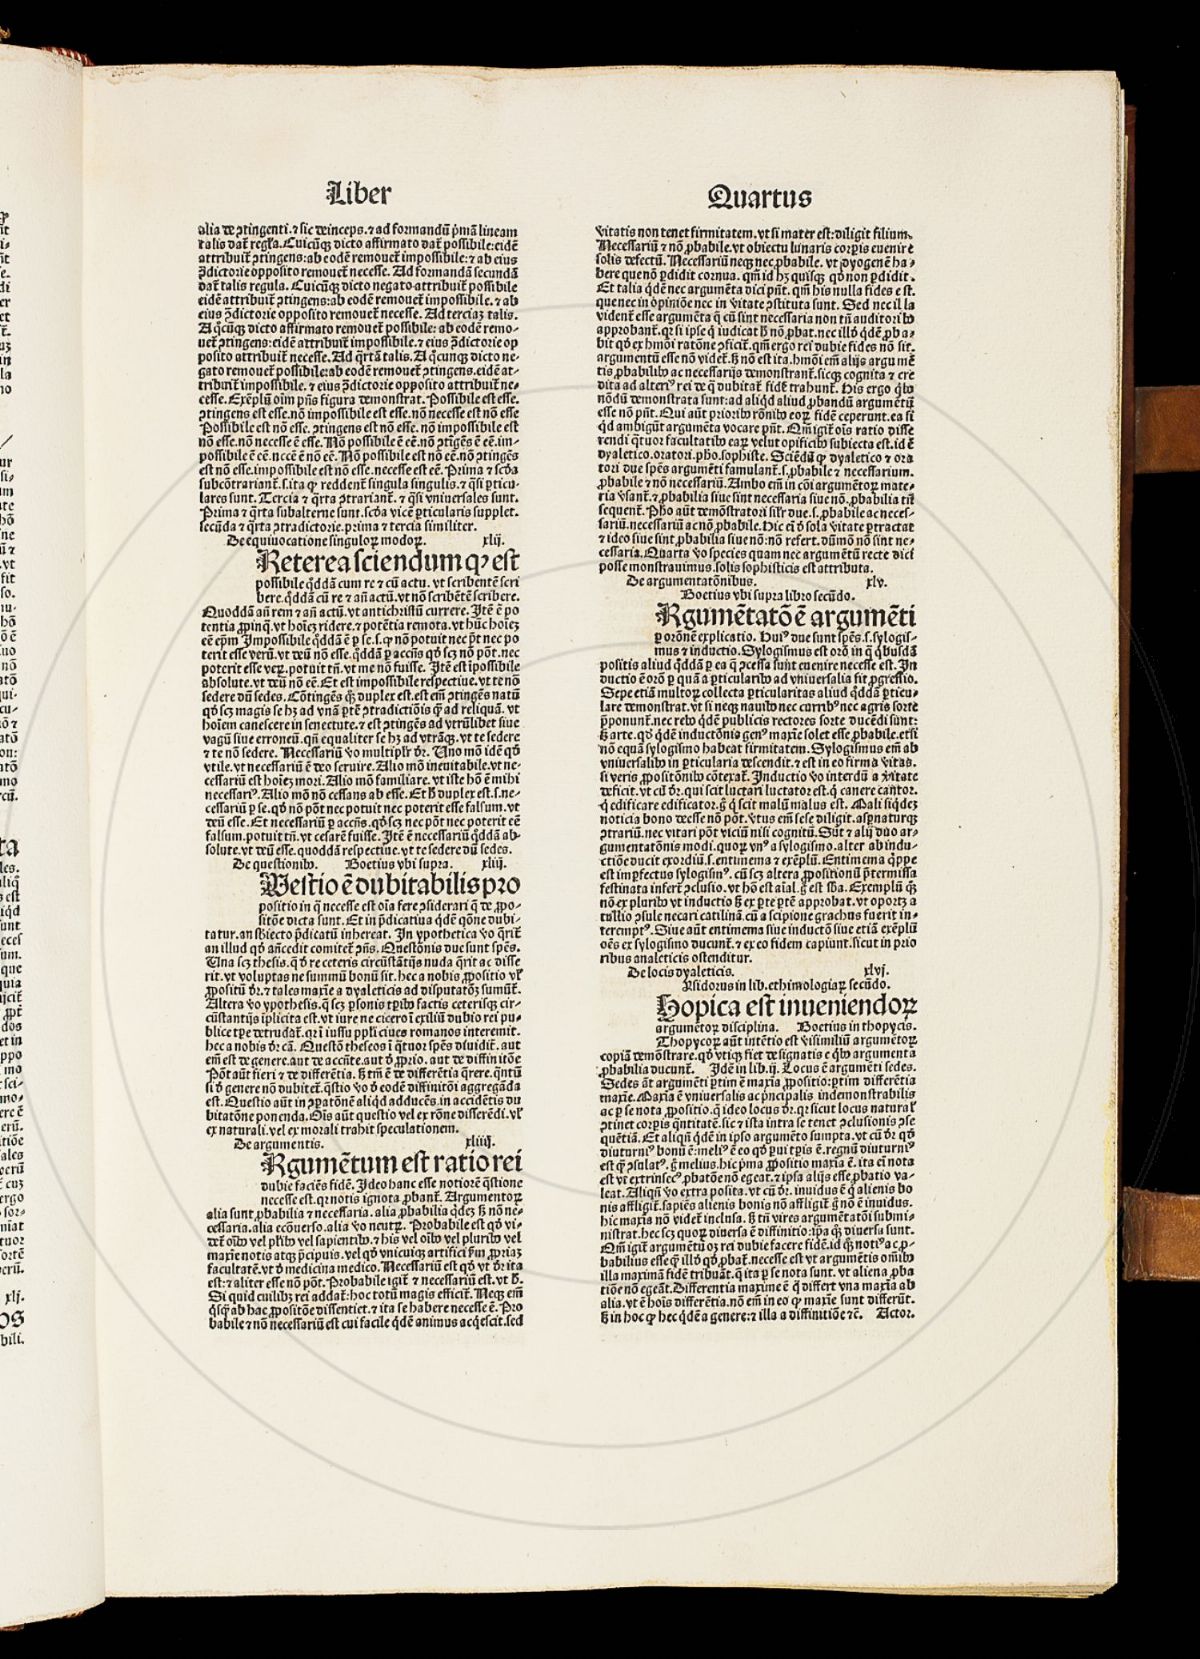 Liber Quartus
alia de ꝯtingenti.⁊ sic deinceps.⁊ ad formandū pmā lineam
talis daꝉ regła. Cuicūqꝫ dicto affirmato daꝉ possibile:eidē
attribuiꝉ ꝯtingens:ab eodē remoueꝉ impossibile:⁊ ab eius
ꝯ̄dictorie opposito remoueꝉ necesse. Ad formandā secundā
daꝉ talis regula. Cuicūqꝫ dicto negato attribuiꝉ possibile
eidē attribuiꝉ ꝯtingens:ab eodē remoueꝉ impossibile.⁊ ab
eius ꝯ̄dictorie opposito remoueꝉ necesse. Ad terciaꝫ talis.
A qcūqꝫ dicto affirmato remoueꝉ possibile: ab eodē remo-
ueꝉ ꝯtingens:eidē attribuiꝉ impossibile.⁊ eius ꝯ̄dictorie op
posito attribuiꝉ necesse. Ad qrtā talis. A qcunqꝫ dicto ne-
gato remoueꝉ possibile:ab eodē remoueꝉ ꝯtingens.eidē at-
tribuiꝉ impossibile.⁊ eius ꝯ̄dictorie opposito attribuiꝉ ne-
cesse. Exēplū oīm pn̄s figura demonstrat. Possibile est esse.
ꝯtingens est esse.nō impossibile est esse.nō necesse est nō esse
Possibile est nō esse.ꝯtingens est nō esse.nō impossibile est
nō esse.nō necesse ē esse. Nō possibile ē eē.nō ꝯtīgēs ē eē.im-
possibile ē eē.nccē ē nō eē. Nō possibile est nō eē.nō ꝯtingēs
est nō esse.impossibile est nō esse.necesse est eē. Prima ⁊ scd̄a
subcōtrarianꝉ.s.ita ꝙ reddenꝉ singula singulis.⁊ qsi pticu-
lares sunt. Tercia ⁊ qrta ꝯtrarianꝉ.⁊ qsi vniuersales sunt.
Prima ⁊ qrta subalterne sunt.scd̄a vicē pticularis supplet.
secūda ⁊ qrta ꝯtradictorie.prima ⁊ tercia similiter.
De equiuocatione singuloꝝ modoꝝ. xlij.
Reterea sciendum ꝙ est
possibile qddā cum re ⁊ cū actu. vt scribentē scri
bere.qddā cū re ⁊ añ actū.vt nō scribētē scribere.
Quoddā añ rem ⁊ añ actū.vt antichristū currere. Itē ē po
tentia ꝓpinq.vt hoīeꝫ ridere.⁊ potētia remota.vt hūc hoīeꝫ
eē epm̄ Impossibile qddā ē p se.s.ꝙ nō potuit nec pt̄ nec po
terit esse verū.vt deū nō esse.qddā p accn̄s qd̓ scꝫ nō pōt.nec
poterit esse veꝝ.potuit tn̄.vt me nō fuisse. Itē est ip̄ossibile
absolute.vt deū nō eē. Et est impossibile respectiue.vt te nō
sedere dū sedes. Cōtingēs qꝫ duplex est.est em̄ ꝯtingēs natū
qd̓ scꝫ magis se hꝫ ad vnā ptē ꝯtradictiōis q̄ ad reliquā. vt
hoīem canescere in senectute.⁊ est ꝯtingēs ad vtrūlibet siue
vagū siue erroneū.qñ equaliter se hꝫ ad vtrāqꝫ.vt te sedere
⁊ te nō sedere. Necessariū vo multiplr̄ dr̄. Uno mō idē qd̓
vtile.vt necessariū ē deo seruire. Alio mō ineuitabile.vt ne-
cessariū est hoīeꝫ mori. Alio mō familiare. vt iste hō ē mihi
necessari⁹. Alio mō nō cessans ab esse. Et h̓ duplex est.s.ne-
cessariū p se.qd̓ nō pōt nec potuit nec poterit esse falsum.vt
deū esse. Et necessariū p accn̄s.qd̓ scꝫ nec pōt nec poterit eē
falsum.potuit tn̄.vt cesarē fuisse. Itē ē necessariū qddā ab-
solute.vt deū esse.quoddā respectiue.vt te sedere dū sedes.
De questionib. Boetius vbi supra. xliij.
Uestio ē dubitabilis pro
positio in q̄ necesse est oīa fere ꝯsiderari q̄ de ꝓpo-
sitōe dicta sunt. Et in p̄dicatiua qdē qōne dubi-
tatur.an sb̄iecto p̄dicatū inhereat. In ypothetica vo qriꝉ
an illud qd̓ añcedit comiteꝉ ꝯn̄s. Questōnis due sunt spēs.
Una scꝫ thesis.q̄ d̓ re ceteris circūstātijs nuda qriꝉ ac disse
rit.vt voluptas ne summū bonū sit.hec a nobis ꝓpositio vl̓
ꝓpositū dr̄.⁊ tales maxīe a dyaleticis ad disputatōꝫ sumūꝉ.
Altera vo ypothesis.q̄ scꝫ psonis tpib factis ceterisqꝫ cir-
cūstantijs īplicita est.vt iure ne cicero ī exiliū dubio rei pu-
blice tpe detrudaꝉ.qr̄ ī iussu ppl̓i ciues romanos interemit.
hec a nobis dr̄ cā. Questō theseos ī qtuor spēs diuidiꝉ.aut
em̄ est de genere.aut de accn̄te.aut d̓ ꝓprio.aut de diffinitōe
Pōt aūt fieri ⁊ de differētia. Sꝫ tm̄ ē de differētia qrere.qntū
si d̓ genere nō dubiteꝉ.qstio vo d̓ eodē diffinitōi aggregāda
est. Questio aūt in ꝯpatōne aliqd adducēs.in accidētis du
bitatōne ponenda. Oīs aūt questio vel ex rōne differēdi.vl̓
ex naturali.vel ex morali trahit speculationem.
De argumentis. xliiij.
Rgumētum est ratio rei
dubie faciēs fidē. Ideo hanc esse notiorē qstione
necesse est.qr̄ notis ignota ꝓbanꝉ. Argumentoꝝ
alia sunt ꝓbabilia ⁊ necessaria. alia ꝓbabilia qdeꝫ sꝫ nō ne-
cessaria.alia ecōuerso.alia vo neutꝝ. Probabile est qd̓ vi-
deꝉ oīb vel pl̓ib vel sapientib.⁊ his vel oīb vel plurib vel
maxīe notis atqꝫ p̄cipuis.vel qd̓ vnicuiqꝫ artifici p̄m ꝓpriaꝫ
facultatē.vt d̓ medicina medico. Necessariū est qd̓ vt dr̄ ita
est:⁊ aliter esse nō pōt. Probabile igiꝉ ⁊ necessariū est.vt h̓.
Si quid cuilibꝫ rei addaꝉ:hoc totū magis efficiꝉ. Neqꝫ em̄
qsqꝫ ab hac ꝓpositōe dissentiet.⁊ ita se habere necesse ē. Pro
babile ⁊ nō necessariū est cui facile qdē animus acqescit.sed
vitatis non tenet firmitatem.vt si mater est:diligit filium.
Necessariū ⁊ nō ꝓbabile.vt obiectu lunaris corpis euenire
solis defectū. Necessariū neqꝫ nec ꝓbabile. vt dyogenē ha-
bere que nō pdidit cornua. qm̄ id hꝫ quisqꝫ qd̓ non pdidit.
Et talia qdē nec argumēta dici pn̄t. qm̄ his nulla fides est.
que nec in opiniōe nec in vitate ꝯstituta sunt. Sed nec illa
videnꝉ esse argumēta q̄ cū sint necessaria non tn̄ auditorib
approbanꝉ.qr̄ si ipse q̄ iudicat h̓ nō ꝓbat.nec illd̓ qdē ꝓba-
bit qd̓ ex hmōi ratōne ꝯficiꝉ.qm̄ ergo rei dubie fides nō sit.
argumentū esse nō videꝉ.sꝫ nō est ita.hmōi em̄ alijs argumē
tis ꝓbabilib ac necessarijs demonstranꝉ.sicqꝫ cognita ⁊ cre
dita ad alteri⁹ rei de q̄ dubitaꝉ fidē trahunꝉ. His ergo qb
nōdū demonstrata sunt:ad aliqd aliud ꝓbandū argumētū
esse nō pn̄t. Qui aūt priorib rōnib eoꝝ fidē ceperunt.ea si
qd ambigūt argumēta vocare pn̄t. Qm̄ igiꝉ oīs ratio disse
rendi qtuor facultatib eaꝝ velut opificib subiecta est.id ē
dyaletico.oratori.pho.sophiste. Sciēdū ꝙ dyaletico ⁊ ora
tori due spēs argumēti famulanꝉ.s.ꝓbabile ⁊ necessarium.
ꝓbabile ⁊ nō necessariū. Ambo em̄ in cōi argumētoꝝ mate-
ria vsanꝉ.⁊ ꝓbabilia siue sint necessaria siue nō.ꝓbabilia tn̄
sequenꝉ. Pho aūt demōstratori silr̄ due.s.ꝓbabile ac neces-
sariū.necessariū ac nō ꝓbabile. Hic ei d̓ sola vitate ptractat
⁊ ideo siue sint ꝓbabilia siue nō:nō refert.dūmō nō sint ne-
cessaria. Quarta vo species quam nec argumētū recte dici
posse monstrauimus.solis sophisticis est attributa.
De argumentatōnibus. xlv.
Boetius vbi supra libro secūdo.
Rgumētatō ē argumēti
p orōnē explicatio. Hui⁹ due sunt spēs.s.sylogis-
mus ⁊ inductio. Sylogismus est orō in q̄ qbusdā
positis aliud qddā p ea q̄ ꝯcessa sunt euenire necesse est. In
ductio ē orō p quā a pticularib ad vniuersalia fit ꝓgressio.
Sepe etiā multoꝝ collecta pticularitas aliud qddā pticu-
lare demonstrat.vt si neqꝫ nauib nec currib⁹ nec agris sorte
p̄ponunꝉ.nec reb qdē publicis rectores sorte ducēdi sunt:
Sꝫ arte.qd̓ qdē inductōnis gen⁹ maxīe solet esse ꝓbabile.etsi
nō equā sylogismo habeat firmitatem. Sylogismus em̄ ab
vniuersalib in pticularia descendit.⁊ est in eo firma vitas.
si veris ꝓpositōnib cōtexaꝉ. Inductio vo interdū a vitate
deficit.vt cū dr̄.qui scit luctari luctator est.q̄ canere cantor.
q̄ edificare edificator.ḡ q̄ scit malū malus est. Mali siqdeꝫ
noticia bono deesse nō pōt.vtus em̄ sese diligit.aspnaturqꝫ
ꝯtrariū.nec vitari pōt viciū nisi cognitū. Sūt ⁊ alij duo ar-
gumentatōnis modi.quoꝝ vn⁹ a sylogismo.alter ab indu-
ctiōe ducit exordiū.s.entimema ⁊ exēplū. Entimema qppe
est imꝑfectus sylogism⁹.cū scꝫ altera ꝓpositionū p̄termissa
festinata inferꝉ ꝯclusio.vt hō est aīal.ḡ est sb̄a. Exemplū qꝫ
nō ex plurib vt inductio sꝫ ex pte ptē approbat.vt oporteꝫ a
tullio ꝯsule necari catilinā.cū a scipione grachus fuerit in-
terempt⁹. Siue aūt entimema siue inductō siue etiā exēplū
oēs ex sylogismo ducunꝉ.⁊ ex eo fidem capiunt.sicut in prio
ribus analeticis ostenditur.
De locis dyaleticis. xlvj.
Ysidorus in lib.ethimologiaꝝ secūdo.
Hopica est inueniendoꝝ
argumētoꝝ disciplina. Boetius in thopycis.
Thopycoꝝ aūt intētio est visimiliū argumētoꝝ
copiā demōstrare.qd̓ vtiqꝫ fiet designatis e qb argumenta
ꝓbabilia ducunꝉ. Idē in lib.ij. Locus ē argumēti sedes.
Sedes āt argumēti ptim ē maxīa ꝓpositio:ptim differētia
maxīe. Maxīa ē vniuersalis ac pncipalis indemonstrabilis
ac p se nota ꝓpositio.q̄ ideo locus dr̄.qr̄ sicut locus naturaľ
ꝯtinet corpis qntitatē.sic ⁊ ista intra se tenet ꝯclusionis ꝯse
quētiā. Et aliqñ qdē in ipso argumēto sumpta.vt cū dr̄ qd̓
diuturni⁹ bonū ē:meli⁹ ē eo qd̓ pui tpis ē.regnū diuturni⁹
est q̄ ꝯsulat⁹.ḡ melius.hic pma ꝓpositio maxīa ē.ita em̄ nota
est vt extrinsec⁹ ꝓbatōe nō egeat.⁊ ipsa alijs esse ꝓbatio va-
leat. Aliqñ vo extra posita. vt cū dr̄. inuidus ē q̄ alienis bo
nis affligiꝉ.sapiēs alienis bonis nō affligiꝉ ḡ nō ē inuidus.
hic maxīa nō videꝉ inclusa. Sꝫ tn̄ vires argumētatōi submi-
nistrat.hec scꝫ quoꝝ diuersa ē diffinitio:ip̄a qꝫ diuersa sunt.
Qm̄ igiꝉ argumētū oꝫ rei dubie facere fidē.id qꝫ noti⁹ ac ꝓ-
babilius esse q̄ illd̓ qd̓ ꝓbaꝉ.necesse est vt argumētis omīb
illa maximā fidē tribuāt.q̄ ita p se nota sunt. vt aliena ꝓba
tiōe nō egeāt. Differentia maxime ē q̄ differt vna maxīa ab
alia.vt ē hoīs differētia.nō em̄ in eo ꝙ maxīe sunt differūt.
sꝫ in hoc ꝙ hec qdē a genere:⁊ illa a diffinitiōe ⁊c̄. Actor.